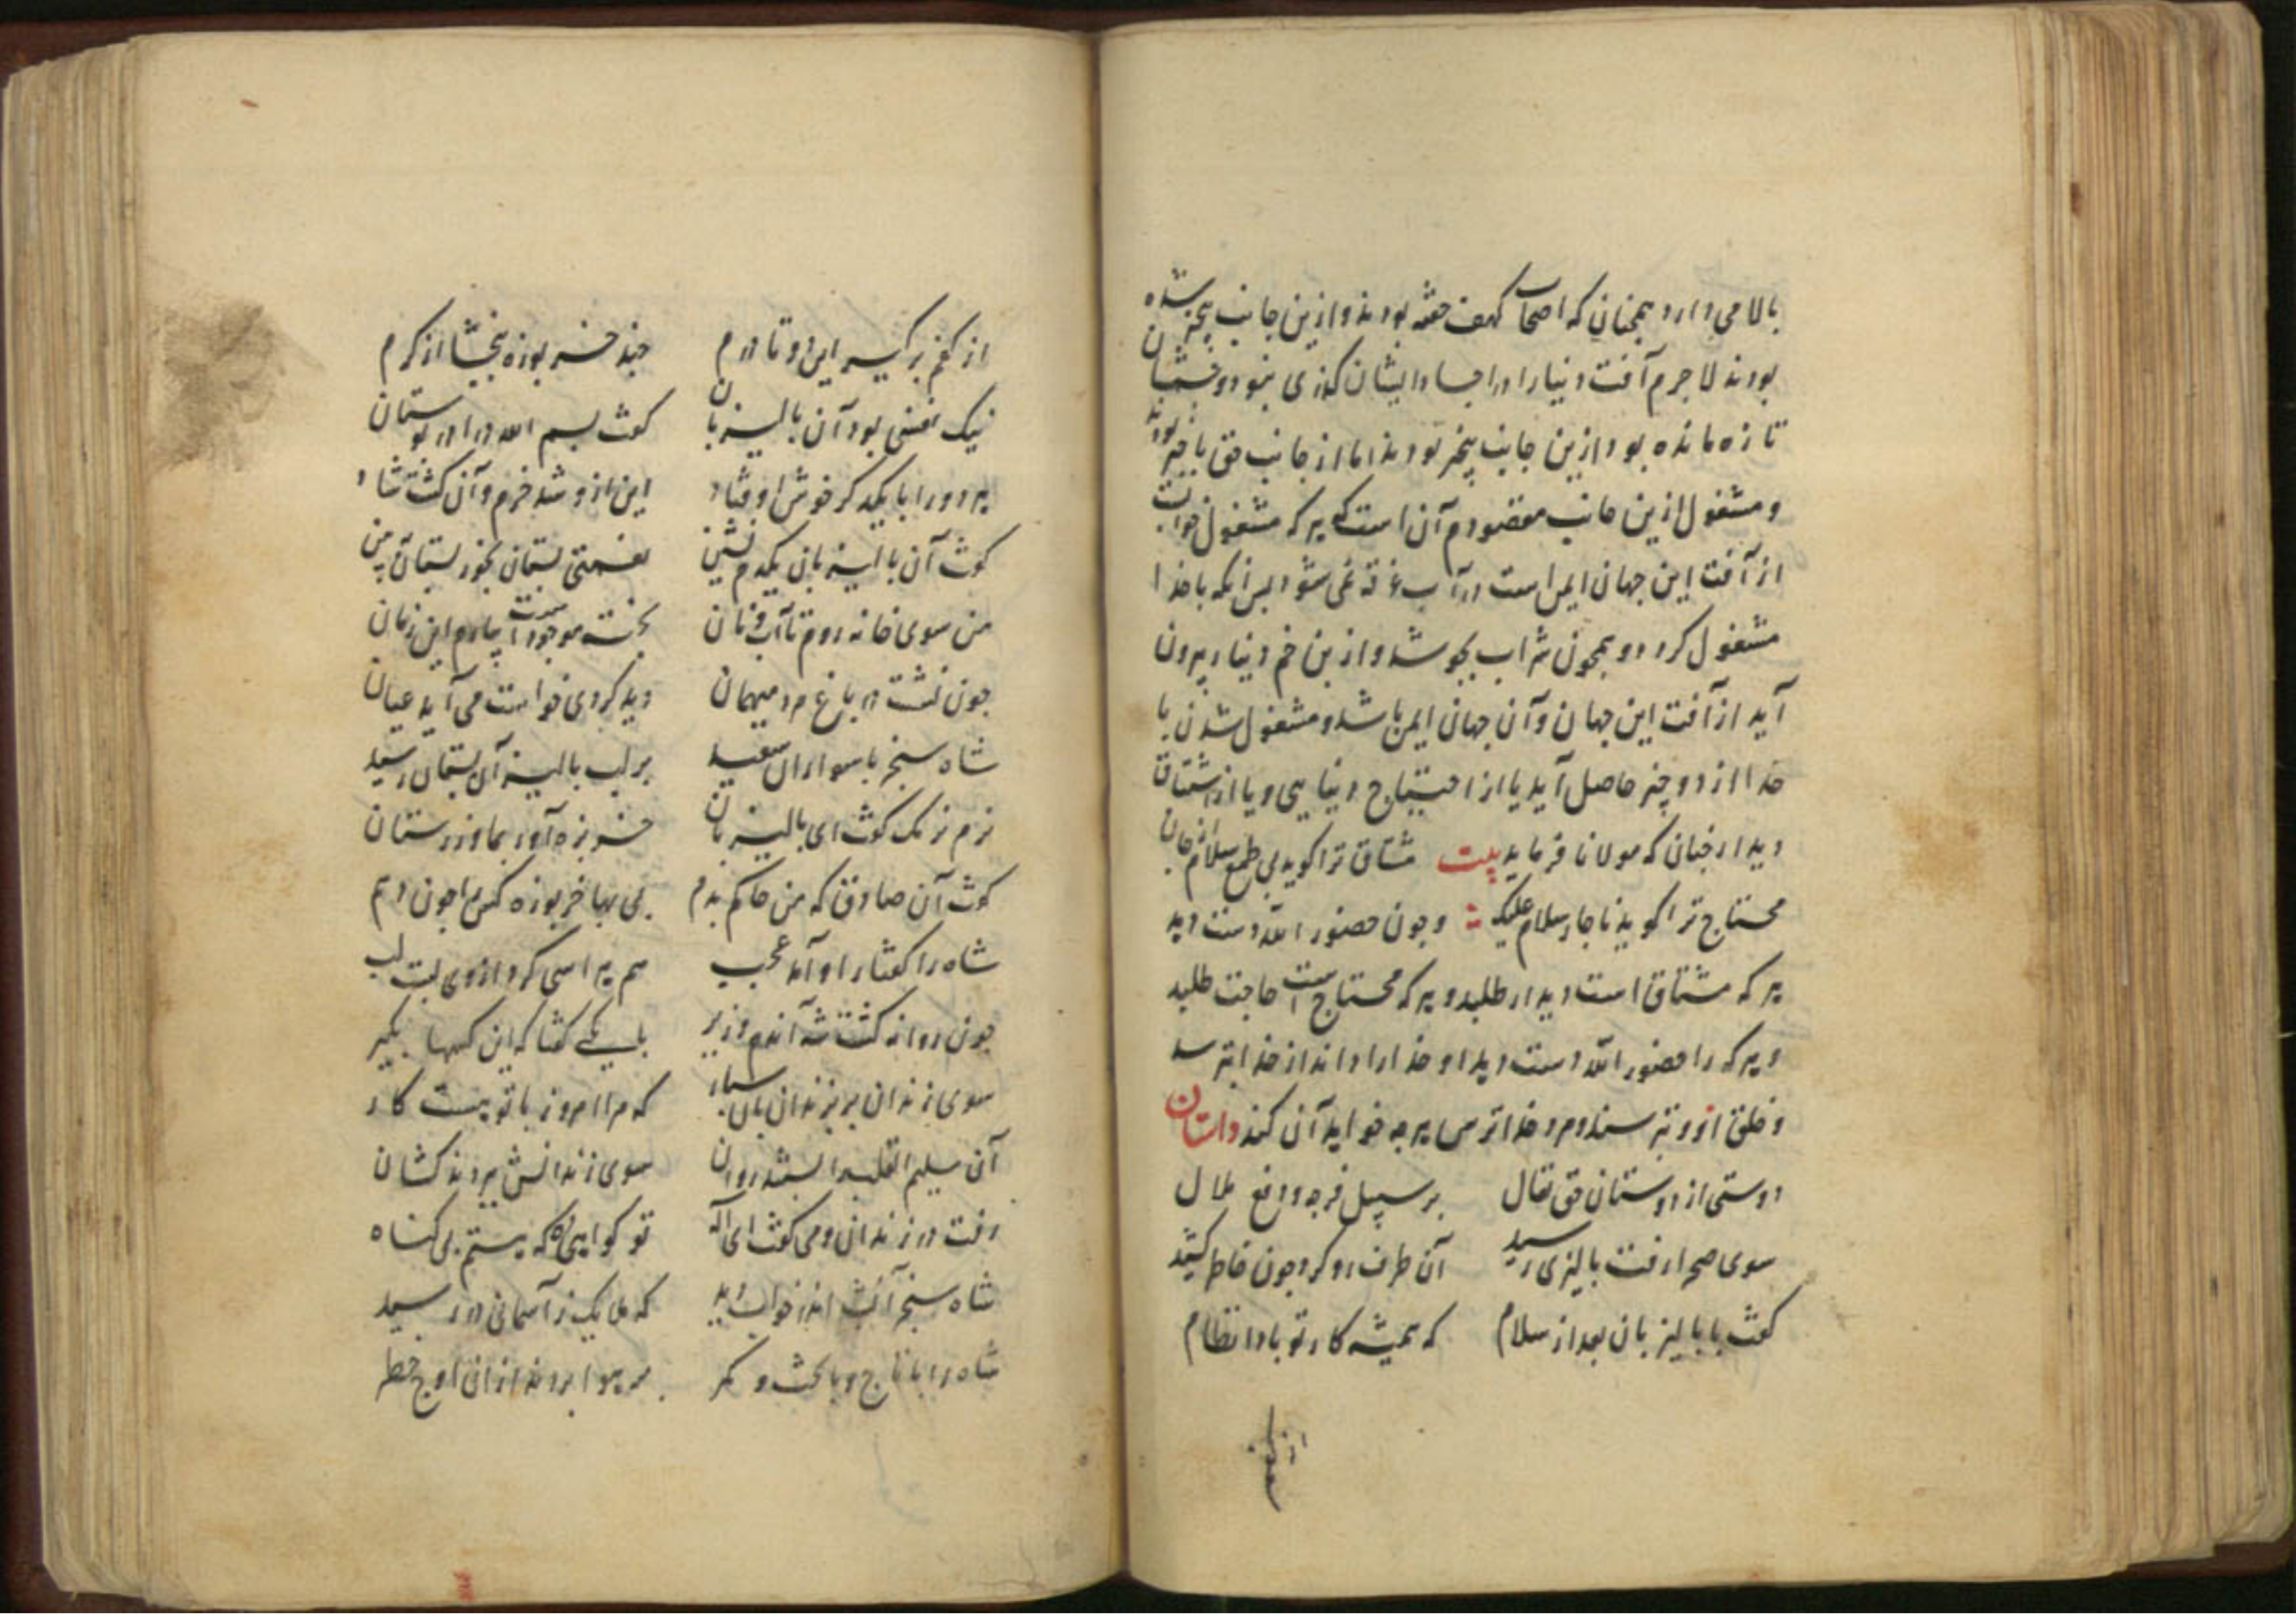 بالا می دارد همچنان که اصحاب کهف خفته بودند و ازین جانب بیخبر شده
بودند لاجرم آفت دنیا را در اجساد ایشان گذری نبود و چشمشان
تازه مانده بود ازین جانب بیخبر بودند اما از جانب حق باخبر بودند
و مشغول ازین جانب مقصودم آن است که هر که مشغول خوابست
از آفت این جهان ایمن است در آب غرقه نمی شود پس آنکه با خدا
مشغول گردد و همچون شراب بجوشد و ازین خم دنیا بیرون
آید از آفت این جهان و آن جهان ایمن باشد و مشغول شدن با
خدا از دو چیز حاصل آید یا از احتیاج دنیایی و یا از اشتیاق
دیدار چنان که مولانا فرماید بیت مشتاق ترا گوید بی طمع سلام از جان
محتاج ترا گوید ناچار سلام علیک و چون حضور الله دست دهد
هر که مشتاق است دیدار طلبد و هر که محتاج است حاجت طلبد
و هر که را حضور الله دست دهد او خدا را داند از خدا بترسد
و خلق ازو بترسند و مرد خداترس هر چه خواهد آن کند داستان
دوستی از دوستان حق تعال بر سبیل فرجه و رفع ملال
سوی صحرا رفت بالیزی رسید آن طرف رو کرد چون خاطر کشید
گفت با بالیزبان بعد از سلام که همیشه کار تو بادا نظام
از کفم برگیر این دو تا درم چند خربوزه ببخشا از کرم
نیک نفسی بود آن بالیزبان گفت بسم الله درا در بوستان
هر دو را با یکدگر خوش اوفتاد این ازو شد خرم و آن گشت شاد
گفت آن بالیزبان یکدم نشین نعمتی بستان بخور بستان ببین
من سوی خانه روم تا آب و نان پخته موجود است بیارم این زمان
چون نشست در باغ مرد میهمان دید گردی خواست می آید عیان
شاه سنجر با سواران سعید بر لب بالیز آن بستان رسید
نرم نرمک گفت ای بالیزبان خربزه آور بما و زر ستان
گفت آن صادق که من حاکم نیم بی بها خربوزه کس را چون دهم
شاه را گفتار او آمد عجب هم هراسی کرد ازوی بست لب
چون روانه گشت شه آندم وزیر با یکی گفتا که این کس را بگیر
سوی زندان بر بزندان بان سپار که مرا امروز با تو هست کار
آن سلیم القلب را بستند روان سوی زندانش بردند کشان
رفت در زندان و می گفت ای اله تو گواهی که هستم بی گناه
شاه سنجر آنشب اندر خواب دید که ملایک ز آسمانی در رسید
شاه را با تاج و با تخت و کمر بر هوا بردند از آن اوج خطر